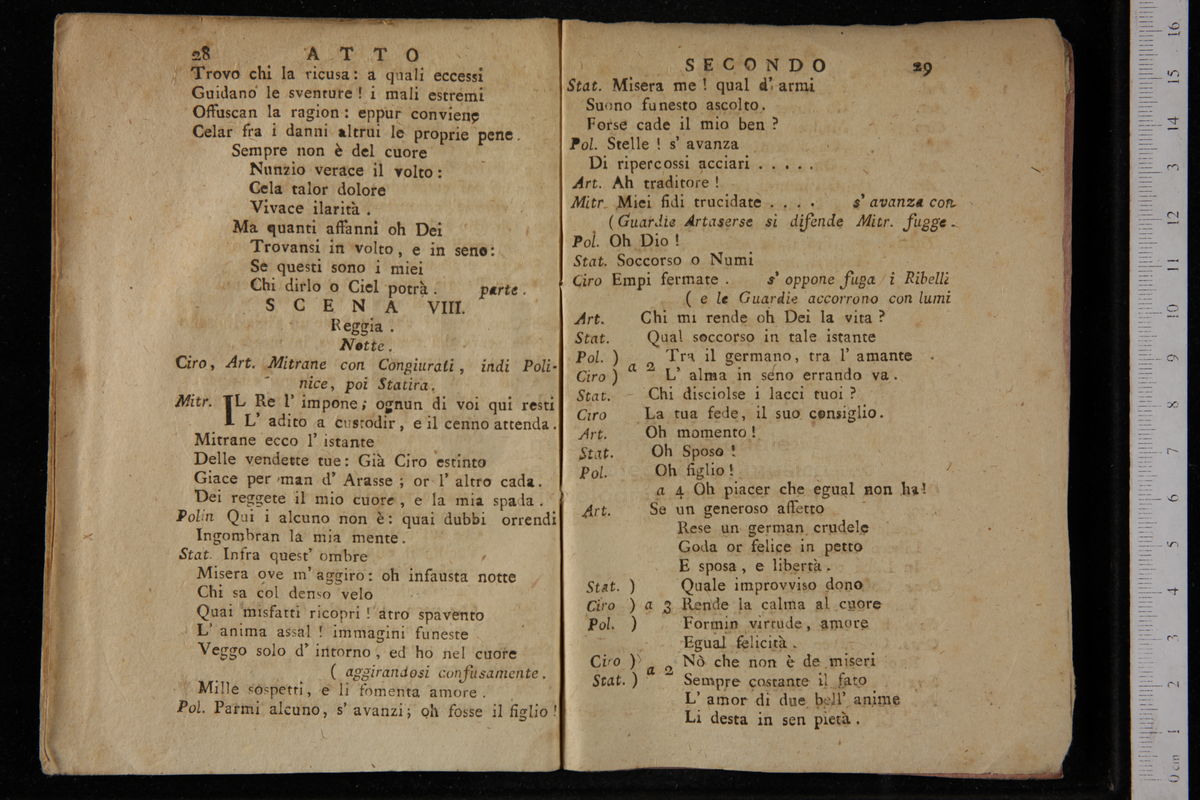 28 ATTO
Trovo chi la ricusa: a quali eccessi
Guidano le sventure! i mali estremi
Offuscan la ragion: eppur conviene
Celar fra i danni altrui le proprie pene.
Sempre non è del cuore
Nunzio verace il volto:
Cela talor dolore
Vivace ilarità.
Ma quanti affanni oh Dei
Trovansi in volto, e in seno:
Se questi sono i miei
Chi dirlo o Ciel potrà. parte.
SCENA VIII.
Reggia.
Notte.
Ciro, Art. Mitrane con Congiurati, indi Poli-
nice, poi Statira.
Mitr. IL Re l' impone; ognun di voi qui resti
L' adito a custodir, e il cenno attenda.
Mitrane ecco l' istante
Delle vendette tue: Già Ciro estinto
Giace per man d' Arasse; or l' altro cada.
Dei reggete il mio cuore, e la mia spada.
Polin Qui i alcuno non è: quai dubbi orrendi
Ingombran la mia mente.
Stat. Infra quest' ombre
Misera ove m' aggiro: oh infausta notte
Chi sa col denso velo
Quai misfatti ricopri! atro spavento
L' anima assal! immagini funeste
Veggo solo d' intorno, ed ho nel cuore
( aggirandosi confusamente.
Mille sospetti, e li fomenta amore.
Pol. Parmi alcuno, s' avanzi; oh fosse il figlio!
SECONDO 29
Stat. Misera me! qual d' armi
Suono funesto ascolto.
Forse cade il mio ben?
Pol. Stelle! s' avanza
Di ripercossi acciari . . . . .
Art. Ah traditore!
Mitr. Miei fidi trucidate . . . . s' avanza con
( Guardie Artaserse si difende Mitr. fugge.
Pol. Oh Dio!
Stat. Soccorso o Numi
Ciro Empi fermate. s' oppone fuga i Ribelli
( e le Guardie accorrono con lumi
Art. Chi mi rende oh Dei la vita?
Stat. Qual soccorso in tale istante
Pol. ) a 2 Tra il germano, tra l' amante
Ciro ) L' alma in seno errando va.
Stat. Chi disciolse i lacci tuoi?
Ciro La tua fede, il suo consiglio.
Art. Oh momento!
Stat. Oh Sposo!
Pol. Oh figlio!
a 4 Oh piacer che egual non ha!
Art. Se un generoso affetto
Rese un german crudele
Goda or felice in petto
E sposa, e libertà.
Stat. ) Quale improvviso dono
Ciro ) a 3 Rende la calma al cuore
Pol. ) Formin virtude, amore
Egual felicità.
Ciro ) a 2 Nò che non è de miseri
Stat. ) Sempre costante il fato
L' amor di due bell' anime
Li desta in sen pietà.
0 cm 1 2 3 4 5 6 7 8 9 10 11 12 13 14 15 16